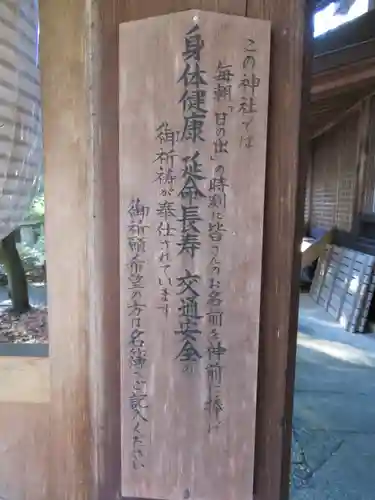 この神社では
毎朝「日の出」の時刻に皆さんのお名前を神前に捧げ
身体健康 延命長寿 交通安全の
御祈祷が奉仕されています
御祈願希望の方は名簿へご記入ください